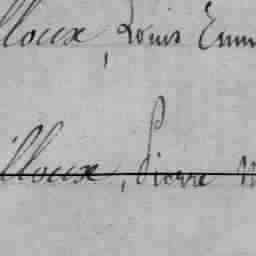 lloux, Louis Emm
illoux, Pierre M